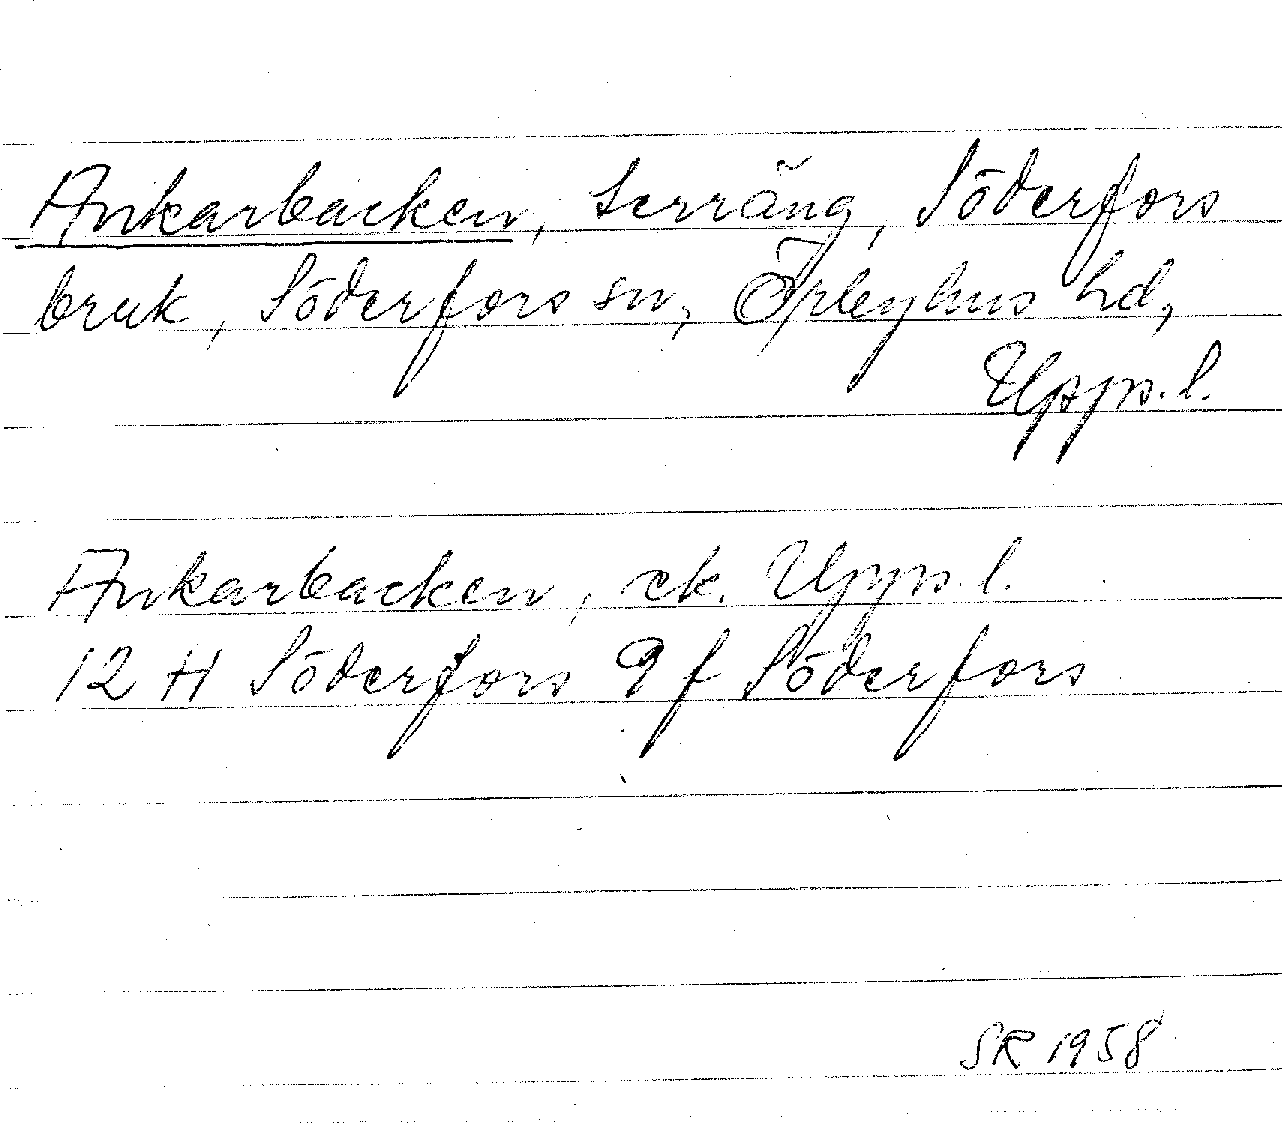 Ankarbacken, terräng, Söderfors
bruk, Söderfors sn, Örbyhus hd,
Upps. l.
Ankarbacken, ek. Upps. l.
12 H Söderfors 9 f Söderfors
SR 1958